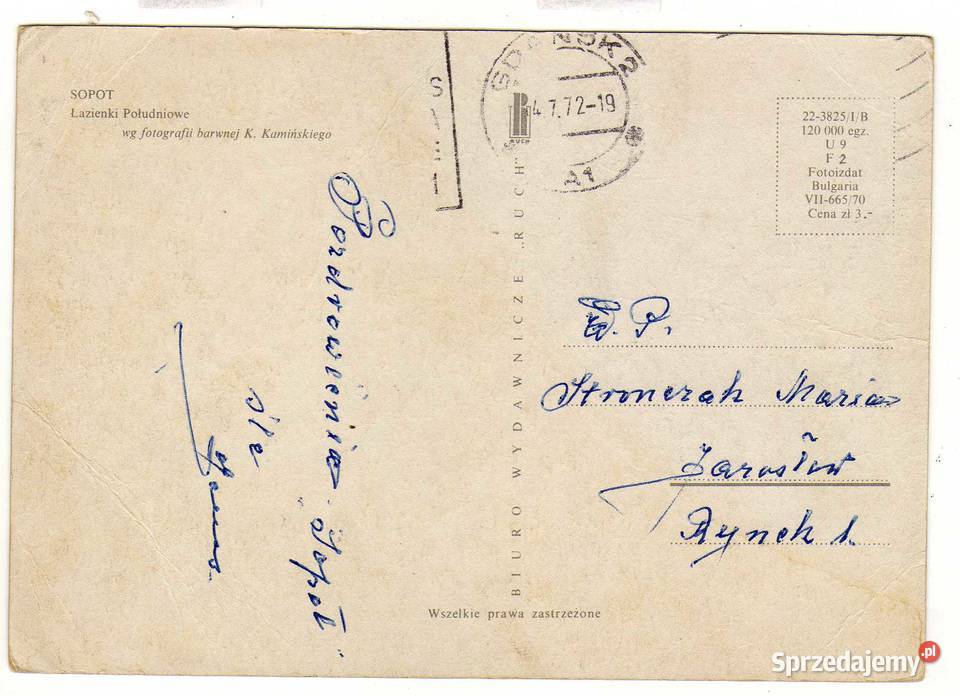 SOPOT
Łazienki Południowe
wg fotografii barwnej K. Kamińskiego
GDAŃSK 2
4.7.72-19
A1
RUCH
22-3825/I/B
120 000 egz.
U 9
F 2
Fotoizdat
Bulgaria
VII-665/70
Cena zł 3.-
Pozdrowienia
"Sopot"
śle
BIURO WYDAWNICZE „RUCH”
W. P.
Stronczak Maria
Jarosław
Rynek 1.
Wszelkie prawa zastrzeżone
Sprzedajemy.pl